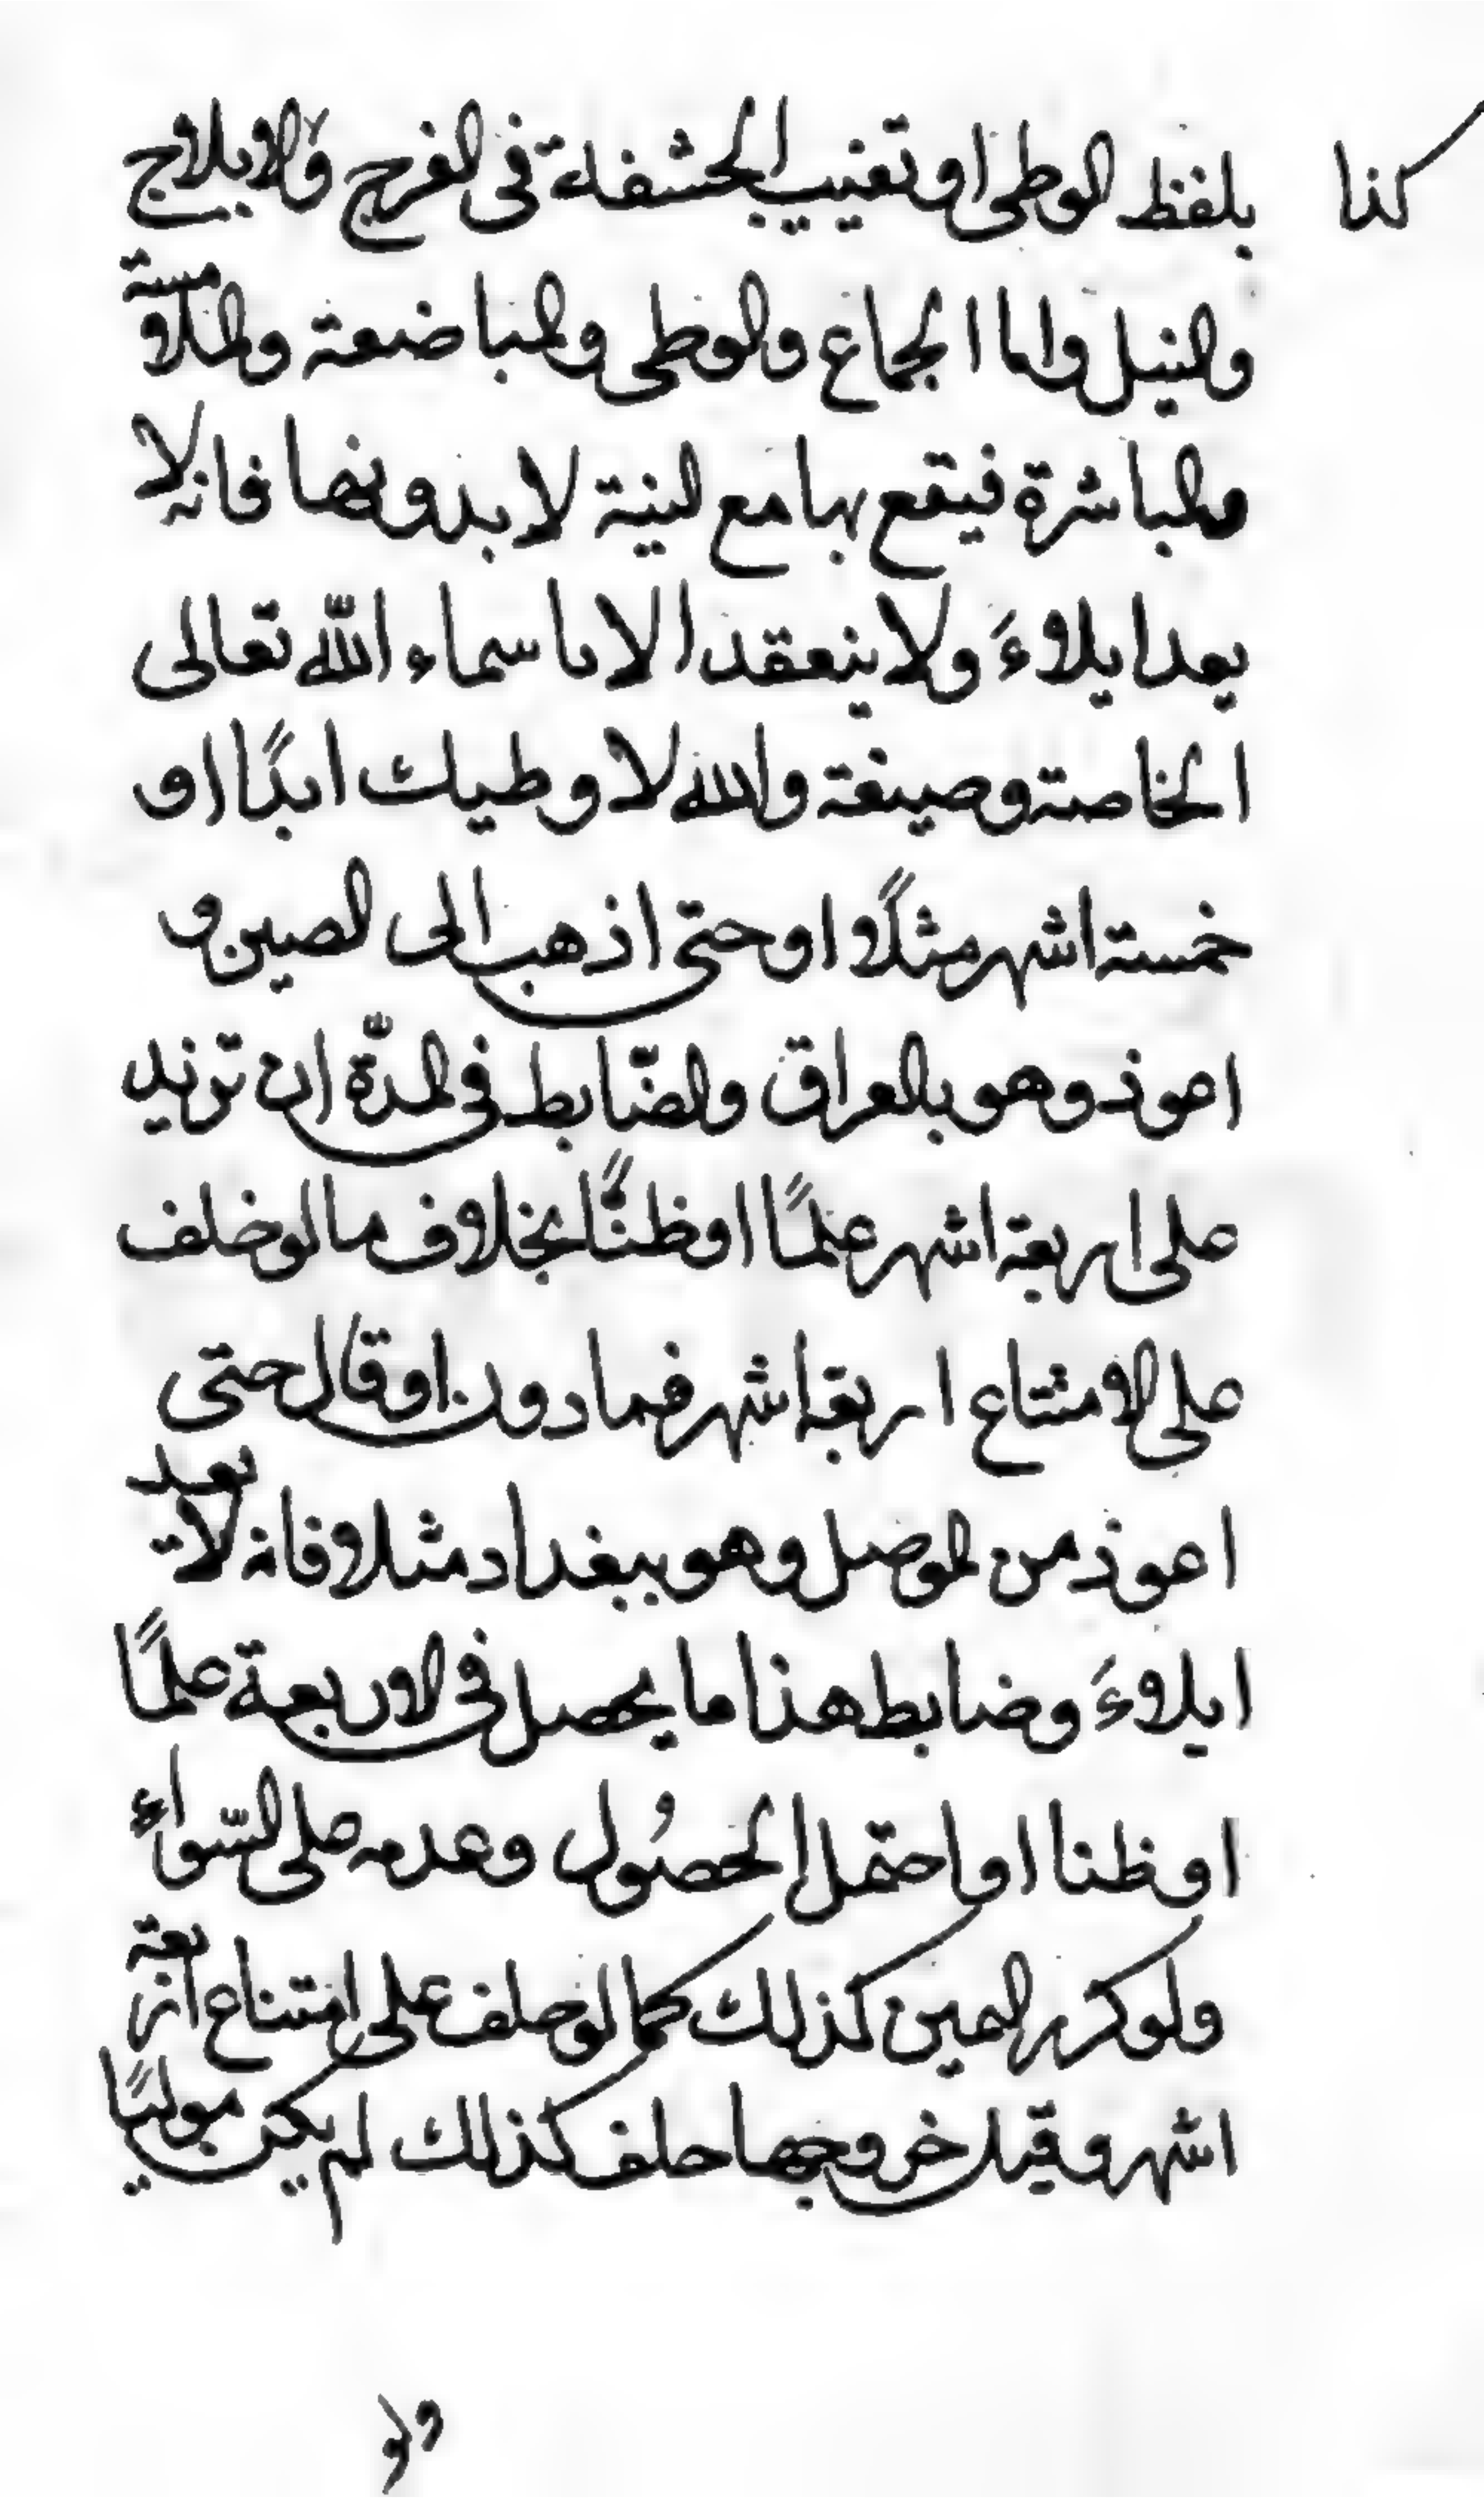 كذا
بلفظ الوطى او تغييب الحشفة فى الفرج والايلاج
والنيل واما الجماع والوطى والمباضعة والملامسة
والمباشرة فيقع بها مع النية لا بدونها فانه لا
يعد ايلاءً ولا ينعقد الا باسماء الله تعالى
الخاصة وصيغة والله لا وطيك ابدًا او
خمسة اشهر مثلًا او حتى اذهب الى الصين و
اعوذ وهو بالعراق والضّابط فى المدّة ان تزيد
على اربعة اشهر علمًا او ظنًّا بخلاف ما لو خلف
على الامتناع اربعة اشهر فما دون او قال حتى
اعوذ من الموصل وهو ببغداد مثلا فانه لا يعد
ايلاءً وضابط هذا ما يحصل فى الاربعة علمًا
او ظنا او احتمل الحصُول وعدمه على السّواء
ولو كرر اليمين كذلك كما لو حلف على امتناع اربعة
اشهر وقبل خروجها حلف كذلك لم يكن موليًا
ولو